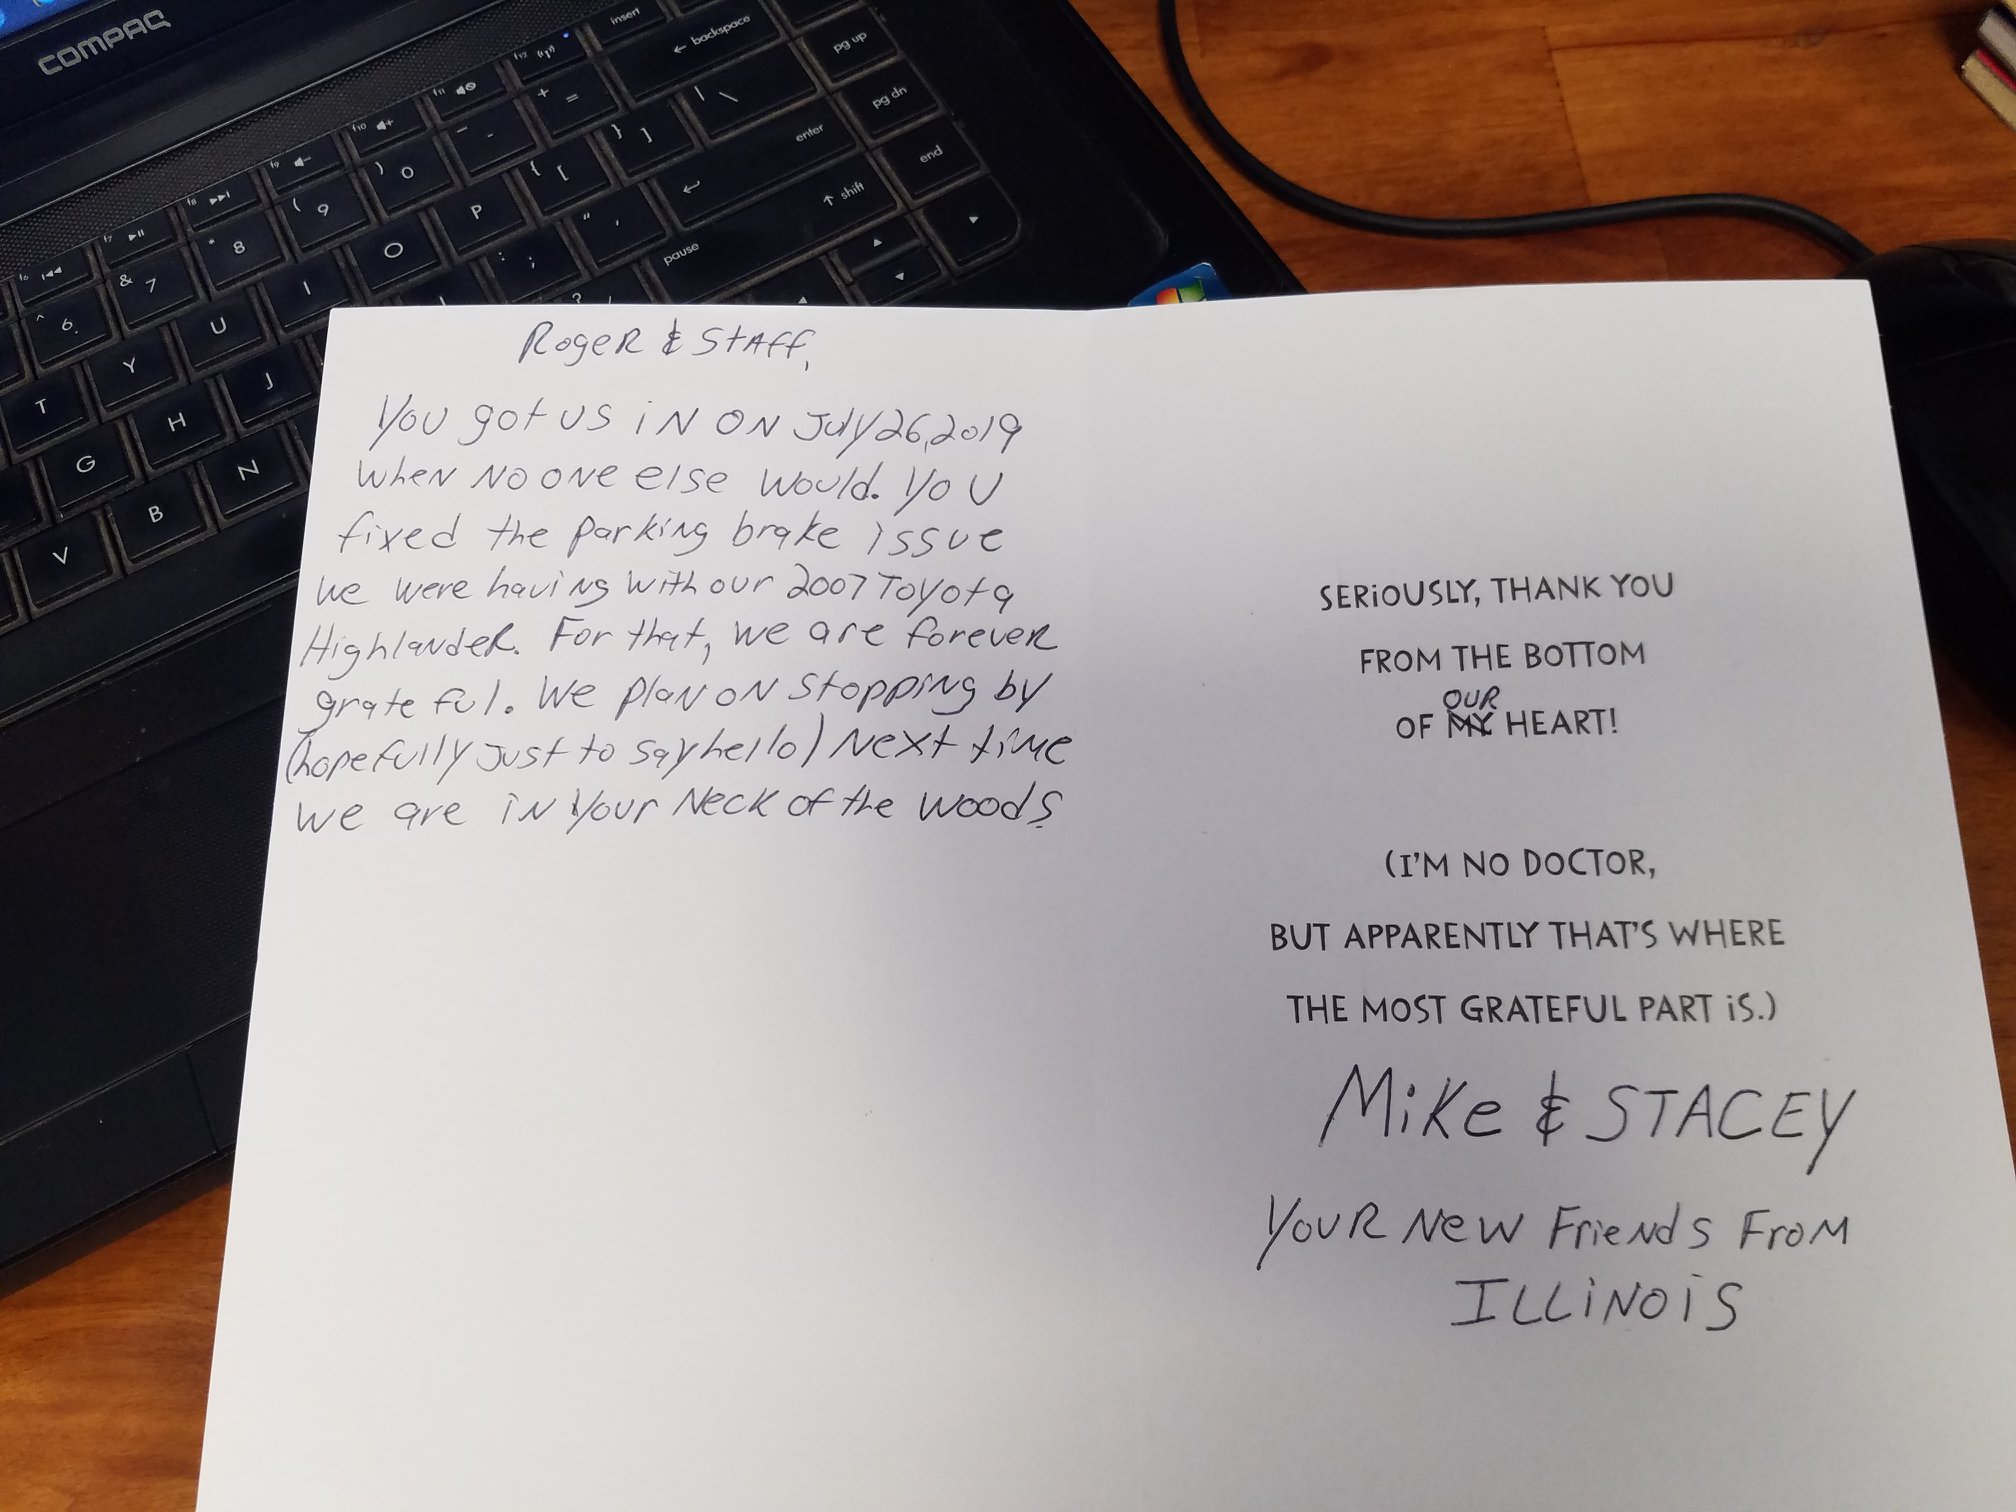 COMPAQ
insert
f12
← backspace
pg up
f11
+ =
| \
pg dn
f10
_ -
} ]
enter
end
f9
) 0
{ [
f8
( 9
P
" '
↑ shift
f7
* 8
O
: ;
pause
f6
& 7
I
?
^ 6
U
Y
J
T
H
G
N
B
V
Roger & Staff,
You got us in on July 26, 2019
when no one else would. You
fixed the parking brake issue
we were having with our 2007 Toyota
Highlander. For that, we are forever
grateful. We plan on stopping by
(hopefully just to say hello) next time
we are in your neck of the woods.
SERIOUSLY, THANK YOU
FROM THE BOTTOM
OUR
OF MY HEART!
(I'M NO DOCTOR,
BUT APPARENTLY THAT'S WHERE
THE MOST GRATEFUL PART IS.)
Mike & STACEY
Your New Friends From
ILLINOIS